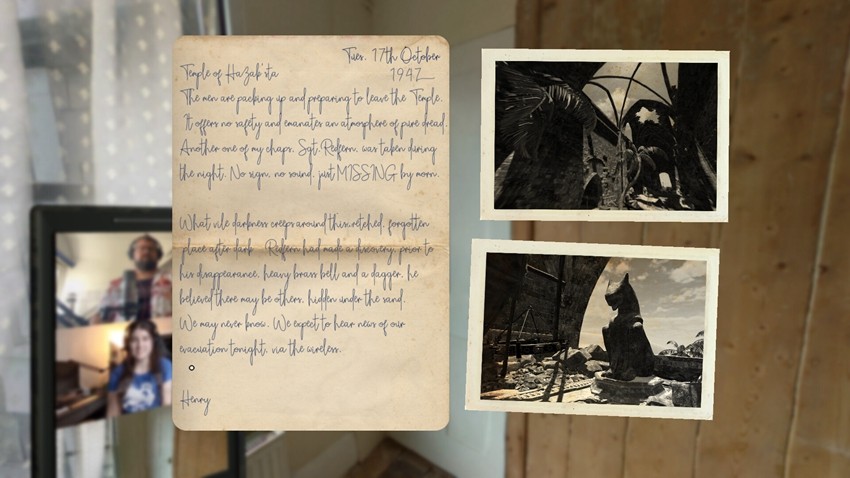 Tues. 17th October
1942
Temple of Hazak'sta
The men are packing up and preparing to leave the Temple.
It offers no safety and emanates an atmosphere of pure dread.
Another one of my chaps, Sgt. Redfern, was taken during
the night. No sign, no sound, just MISSING by morn.
What vile darkness creeps around this wretched, forgotten
place after dark. Redfern had made a discovery, prior to
his disappearance, heavy brass bell and a dagger, he
believed there may be others, hidden under the sand.
We may never know. We expect to hear news of our
evacuation tonight, via the wireless.
Henry